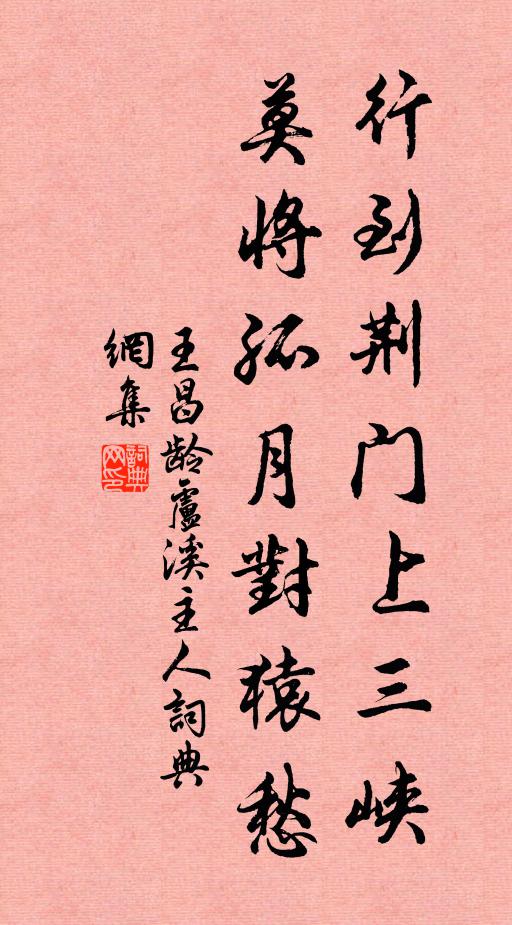 行到荆门上三峡
莫將孤月對猿愁
王昌龄盧溪主人詞典
網集
詞典
网印